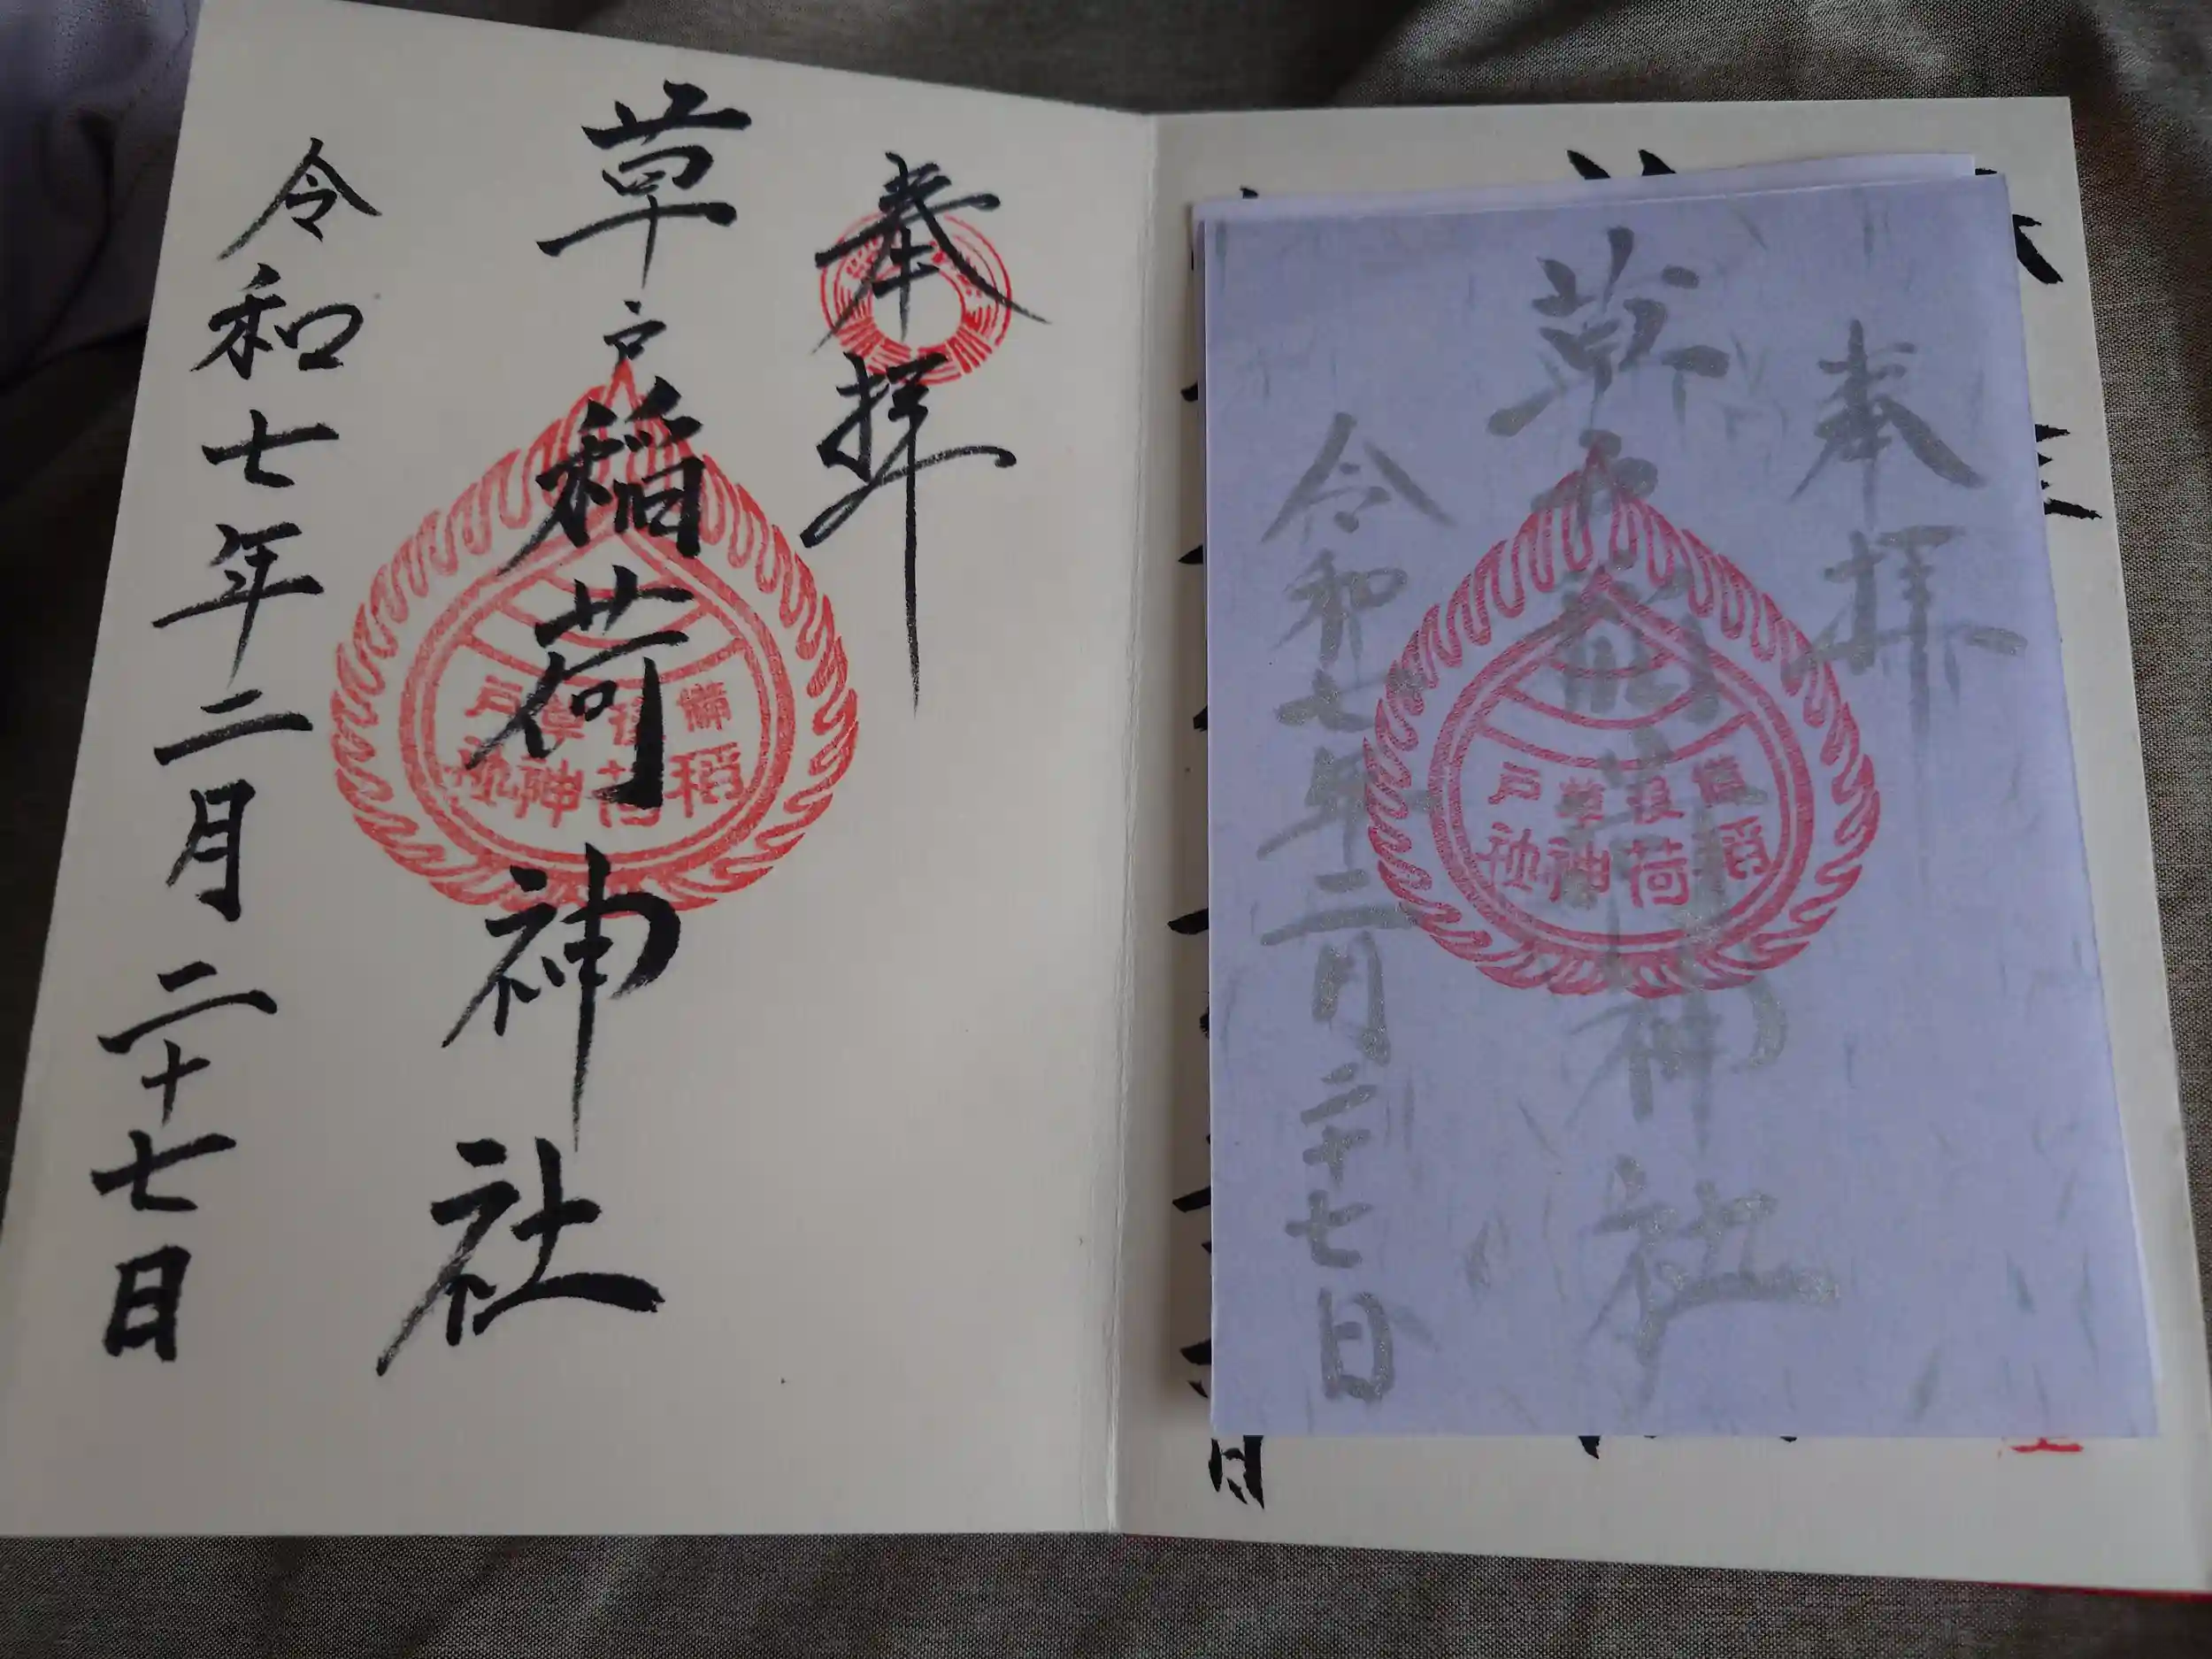 奉拝
草戸稲荷神社
備後草戸
稲荷神社
令和七年二月二十七日
奉拝
草戸稲荷神社
備後草戸
稲荷神社
令和七年二月二十七日